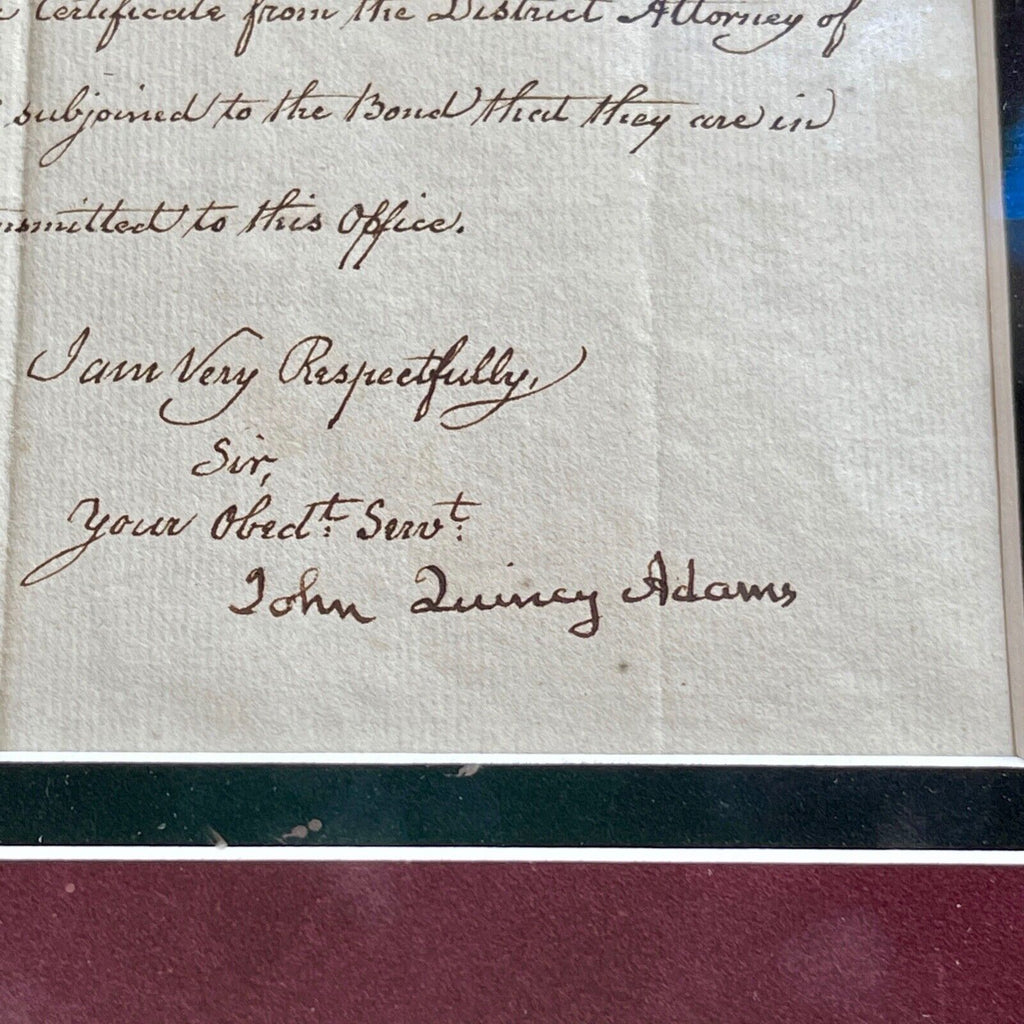 Certificate from the District Attorney of
subjoined to the Bond that they are in
nsmitted to this Office.
I am Very Respectfully,
Sir,
Your Obedt. Servt.
John Quincy Adams